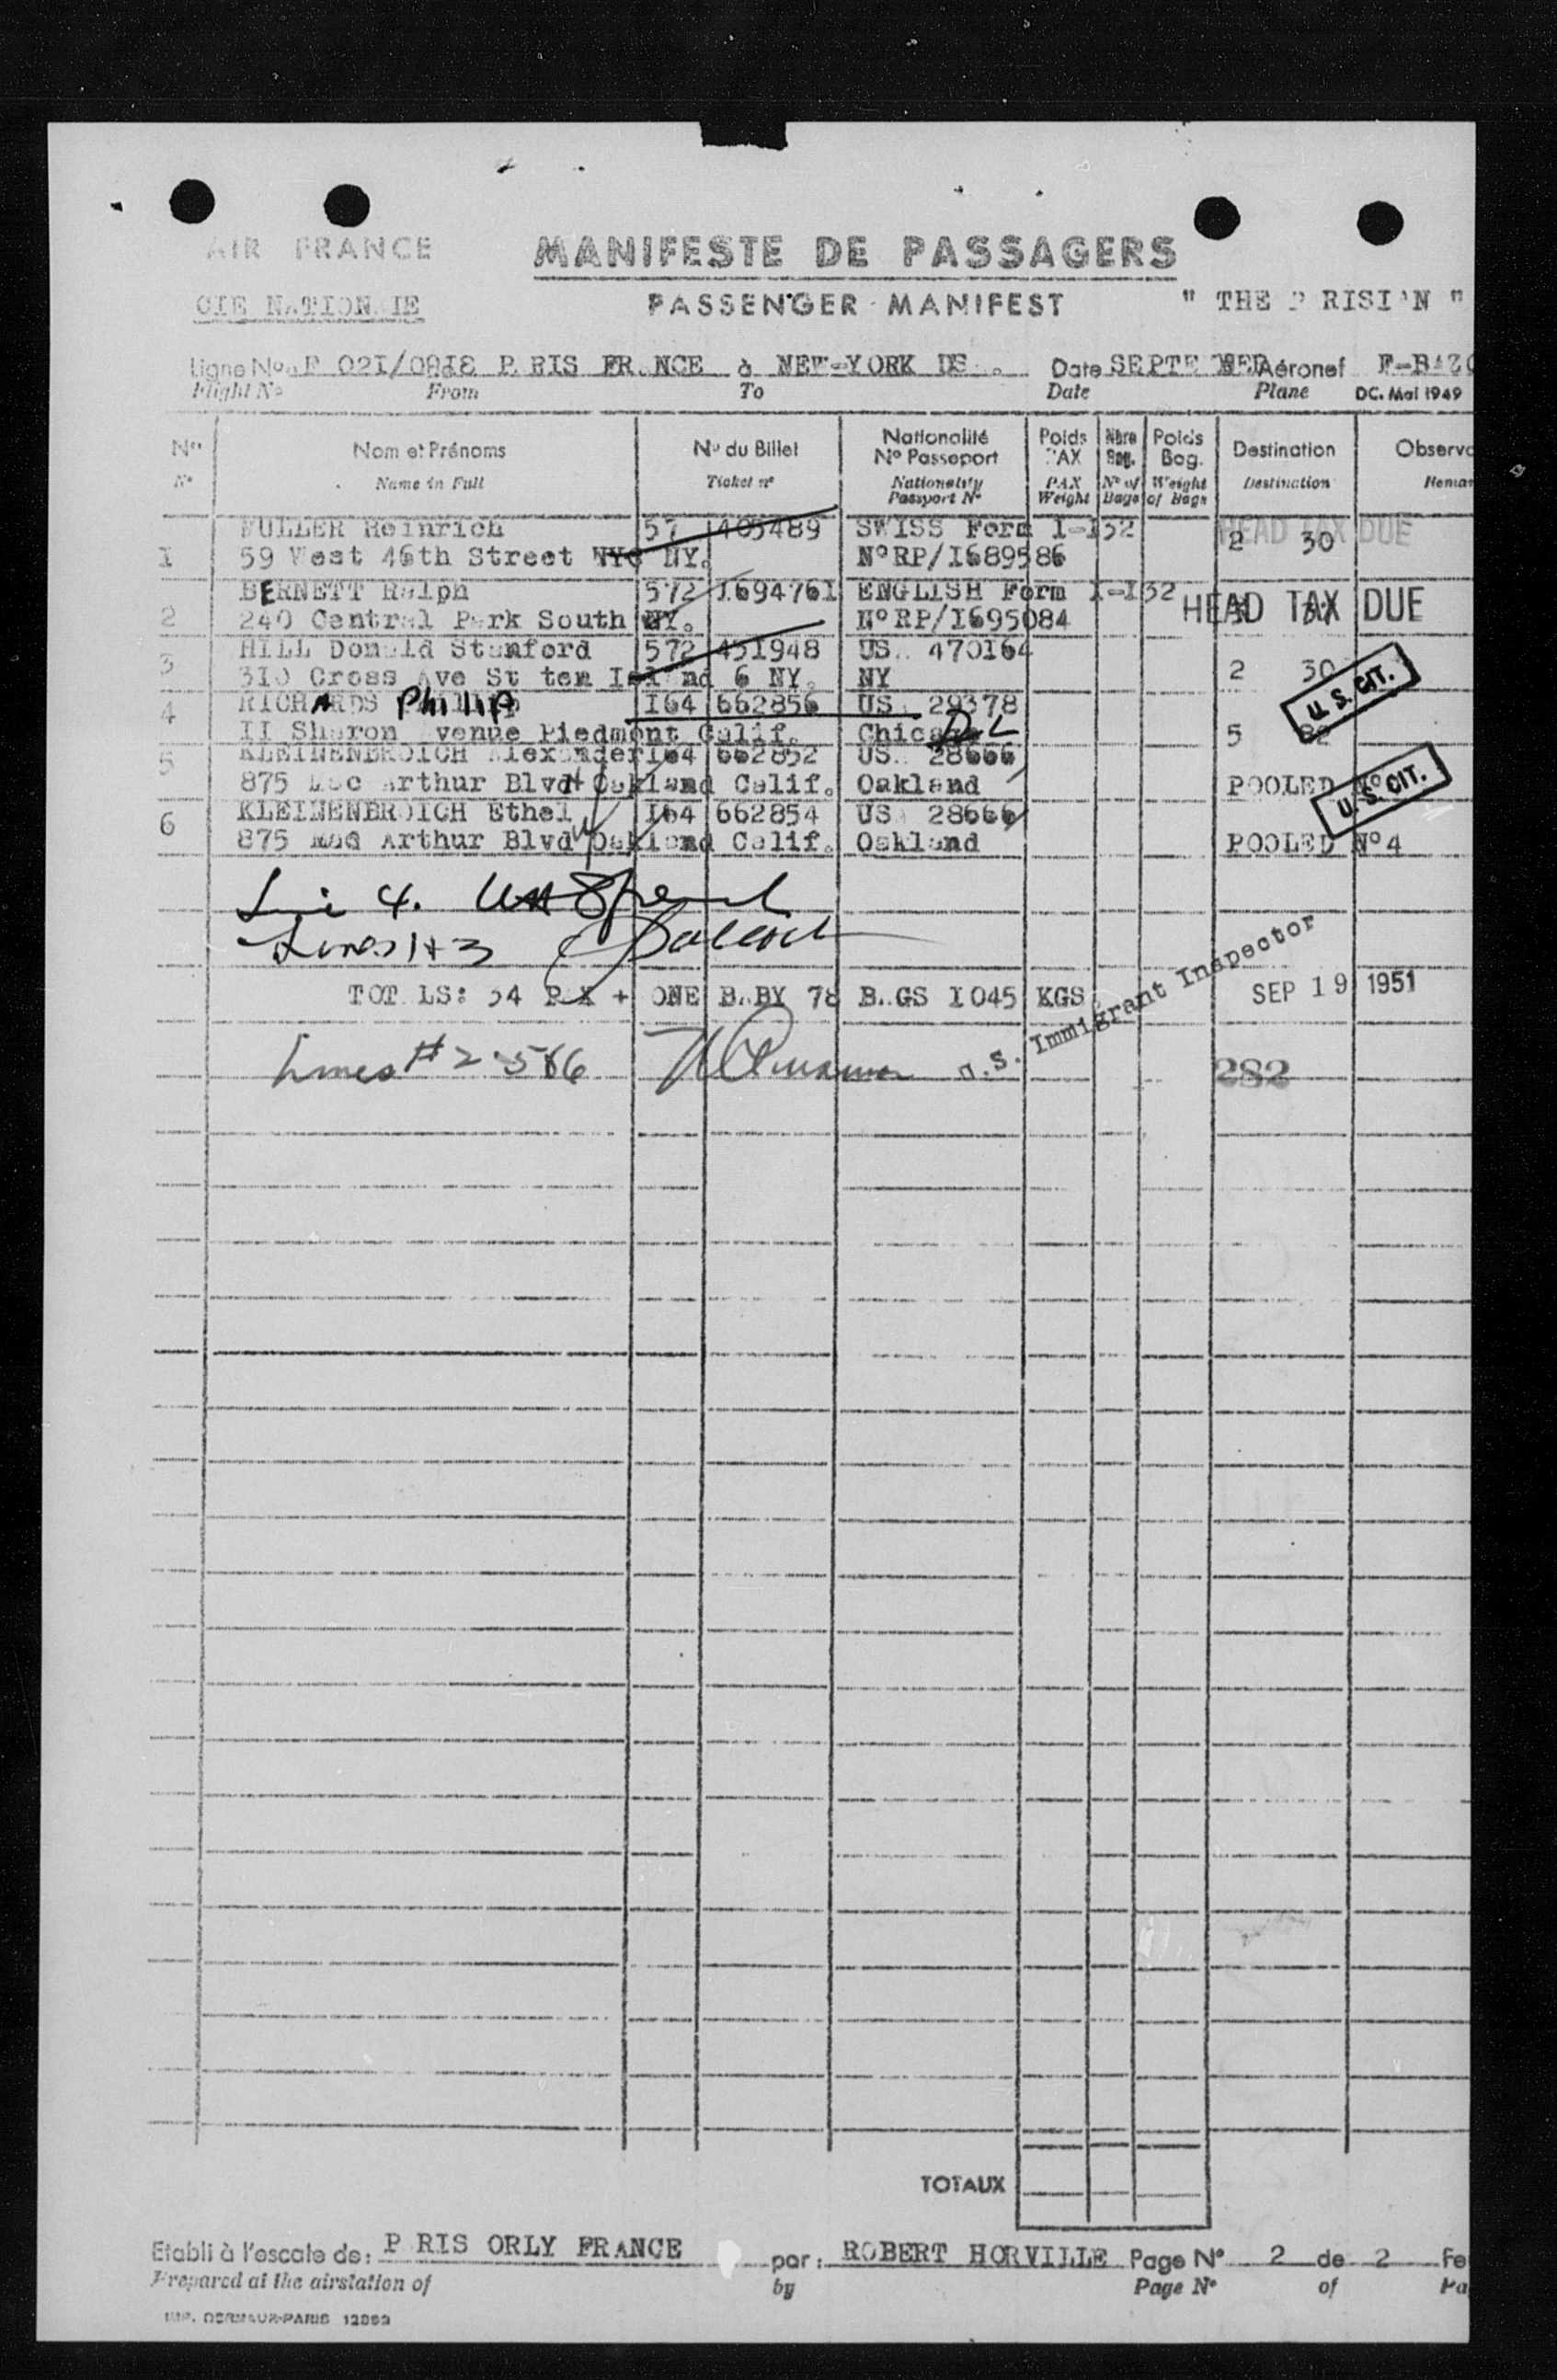 AIR FRANCE
MANIFESTE DE PASSAGERS
CIE NATION IE
PASSENGER MANIFEST
" THE P RISI N "
Ligne No. F 021/0918 P RIS FR NCE à NEW-YORK US . Date SEPTE Aéronef F-B
Flight No From To Date Plane DC. Mai 1949
No Nom et Prénoms No du Billet Nationalité No Passeport Poids PAX Nbre Bag. Poids Bag. Destination Observa
No Name in Full Ticket no Nationality Passport No PAX Weight No of Bags Weight of Bags Destination Remar
FULLER Heinrich 57 405489 SWISS Form I-132 HEAD TAX DUE
1 59 West 46th Street NYC NY. NoRP/I689586 2 30
BERNETT Ralph 572 1694761 ENGLISH Form I-I32 HEAD TAX DUE
2 240 Central P rk South NY. NoRP/I695084
HILL Donald Stanford 572 451948 US. 470164
3 310 Cross Ave St ten Isl nd 6 NY. NY 2 30
U. S. CIT.
RICHARDS PhilliP I64 662856 US 29378
4 II Sharon venue Piedmont Calif. Chicago 5
KLEINENBROICH Alexander I64 662852 US. 28666
5 875 Mac Arthur Blvd Oakland Calif. Oakland POOLED No
U. S. CIT.
KLEINENBROICH Ethel I64 662854 US 28666
6 875 Mac Arthur Blvd Oakland Calif. Oakland POOLED No4
Line 4.
Lines 1+3
TOT LS: 34 P X + ONE B BY 78 B GS I045 KGS
U.S. Immigrant Inspector
SEP 19 1951
Lines # 2-5&6
282
TOTAUX
Etabli à l'escale de: P RIS ORLY FRANCE par: ROBERT HORVILLE Page No 2 de 2 Fe
Prepared at the airstation of by Page No of Pa
IMP. DERMAUX-PARIS